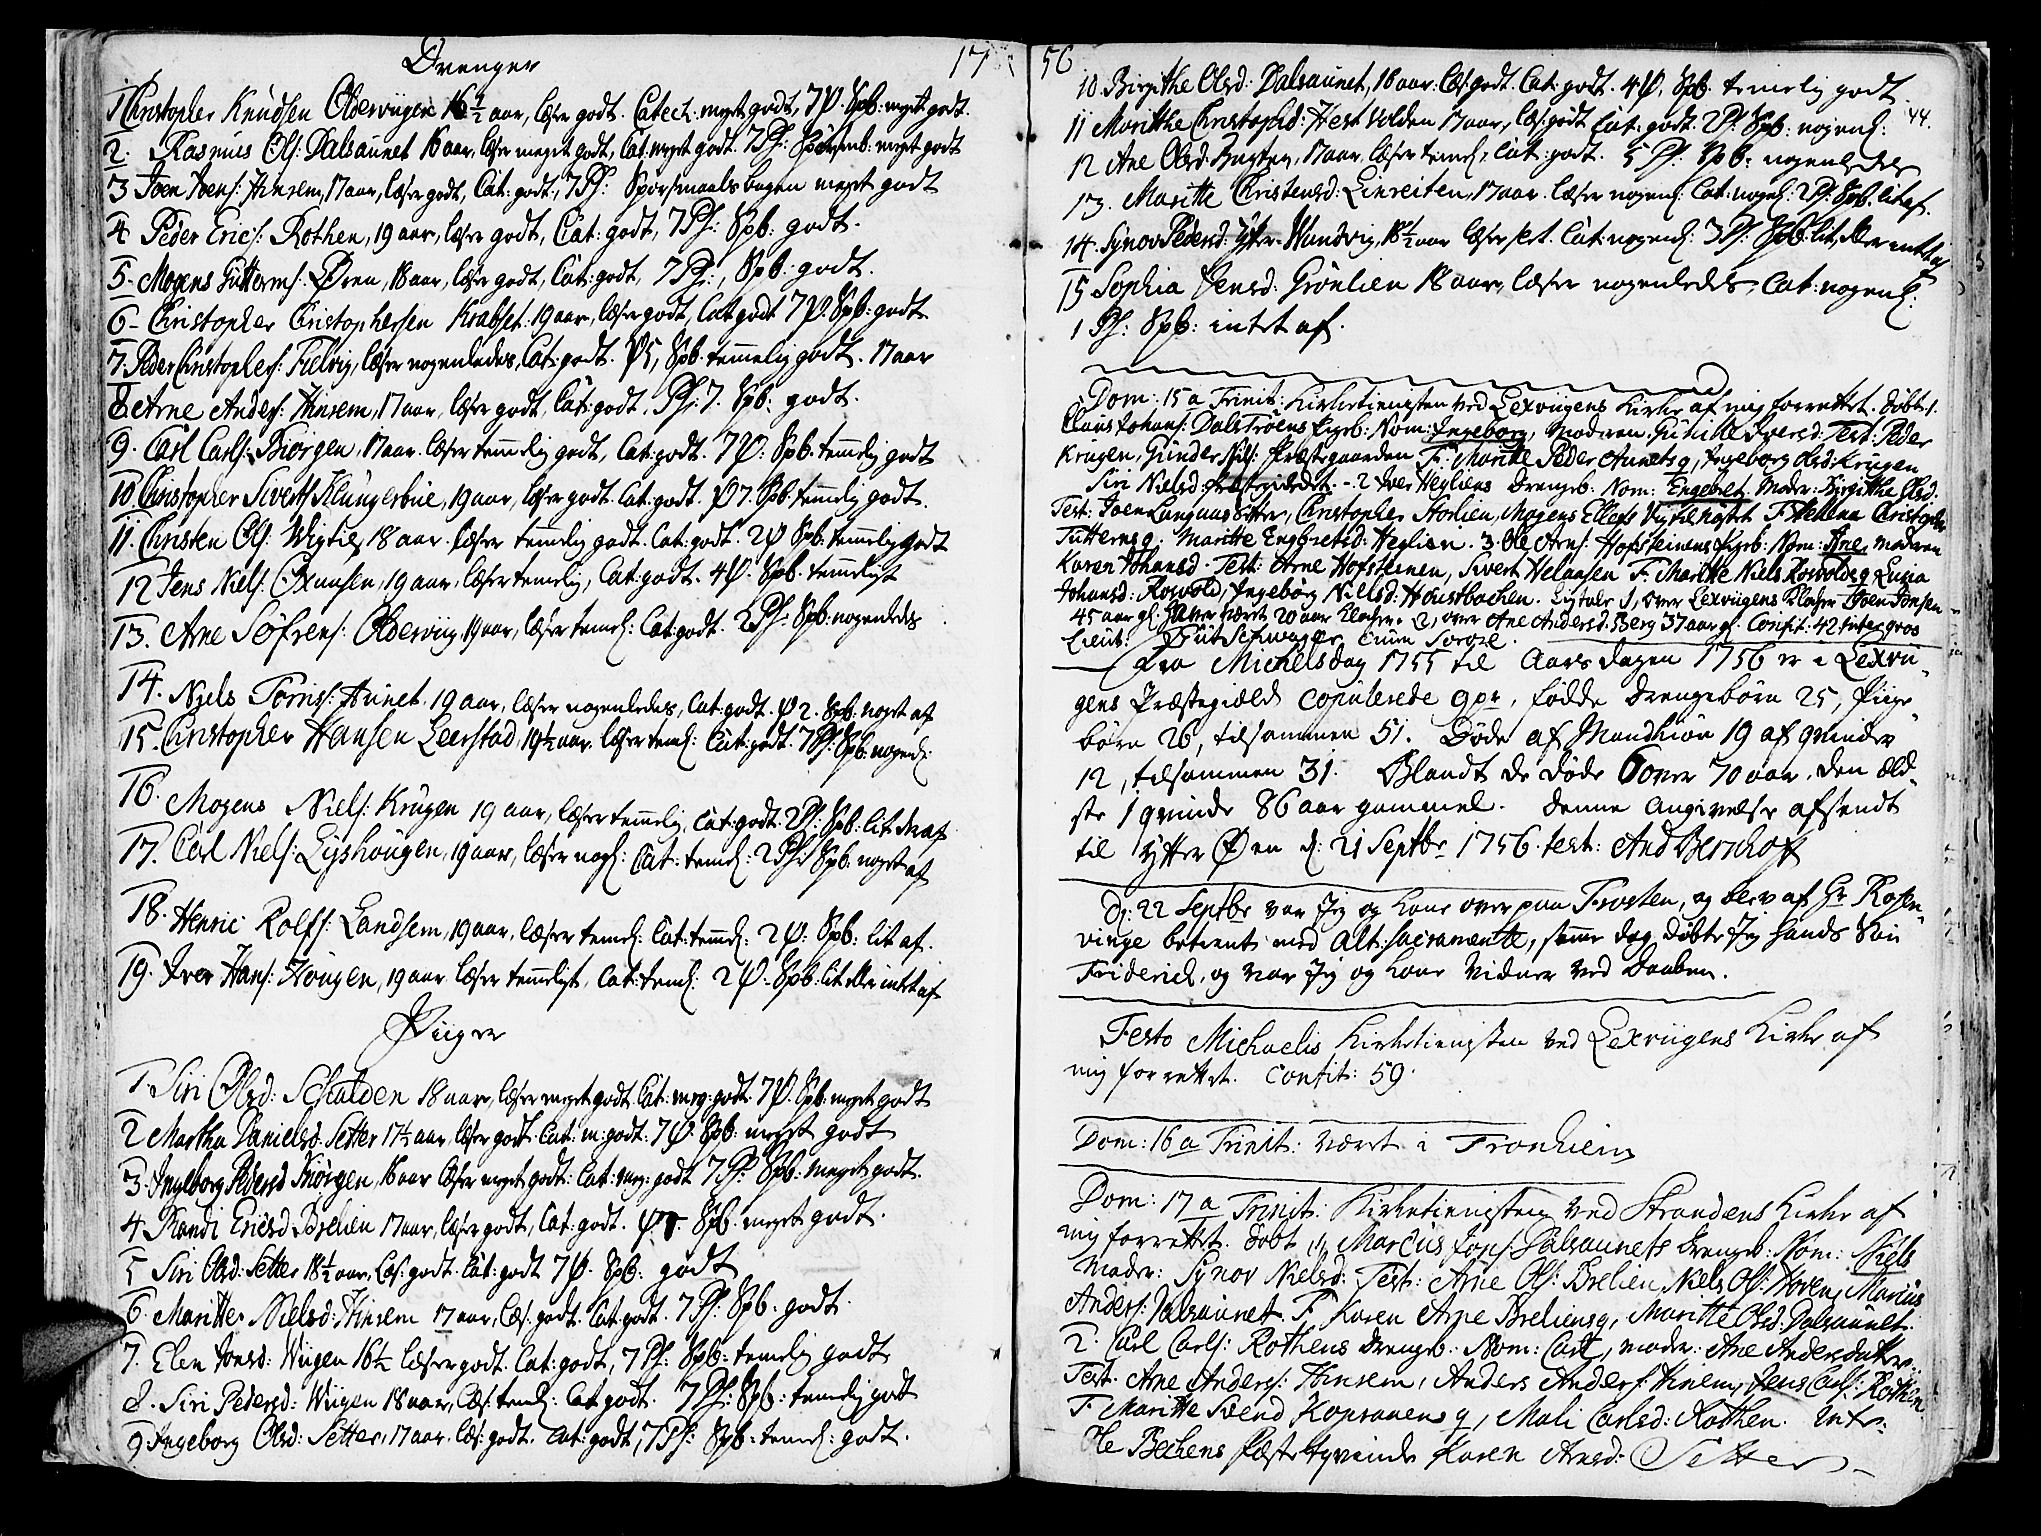 Drenger
17
1 Christopher Knudsen Olderviigen 16 1/2 aar, læser godt. Catech: meget godt, 7 P. Spb: meget godt.
2. Rasmus Ols: Dalsaunet 16 aar, læser meget godt, Cat: meget godt. 7 Ps: Spørsmb: meget godt
3 Joen Joens: Hinsem, 17 aar, læser godt, Cat: godt, 7 Ps: Spørsmaals bogen meget godt
4 Peder Erics: Rothen, 19 aar, læser godt, Cat: godt, 7 Ps: Spb: godt.
5. Mogens Gutterms: Øren, 18 aar, læser godt, Cat: godt, 7 Ps:, Spb: godt.
6 - Christopher Christophersen Krabset: 19 aar, læser godt, Cat godt 7 P. Spb: godt
7. Peder Christophers: Fielvig, læser nogenledes, Cat: godt. P 5, Spb. temmelig godt. 17 aar
8 Arne Anders: Hinsem, 17 aar, læser godt, Cat: godt. Ps: 7. Spb: godt.
9. Carl Carls: Biørgen, 17 aar læser temmelig godt, Cat: godt. 7 P: Spb: temmelig godt
10 Christopher Siverts Klungerbue, 19 aar, læser godt. Cat: godt. P 7. Spb: temmelig godt.
11. Christen Ols: Wigtil, 18 aar læser temmelig godt. Cat: godt. 2 P Spb: temmelig godt
12 Jens Niels: Oxaasen, 19 aar, læser temelig, Cat: godt. 4 P. Spb. temmeligt
13. Arne Søfrens: Olderviig, 19 aar, læser temel: Cat: godt. 2 Ps: Spb: nogenledes
14. Niels Tørris: Aunet, 19 aar, læser nogenledes, Cat: godt. P 2. Spb: noget af
15. Christopher Hansen Leerstad, 19 1/2 aar læser temel: Cat: godt. 7 Ps: Spb: nogenl:
16. Mogens Niels: Krugen 19 aar, læser temmelig, Cat: godt. 2 Ps: Spb: lit deraf
17. Carl Niels: Lyshougen, 19 aar, læser nogl: Cat: temel: 2 Ps: Spb. noget af
18. Henric Rolfs: Landsem, 19 aar, læser temel: Cat: temmel: 2 P: Spb: lit af.
19. Iver Hans: Hougen, 19 aar læser temmeligt, Cat: temel: 2 P - Spb: lit eller intet af
Piiger
1. Siri Olsd: Schalden 18 aar, læser meget godt, Cat: meg: godt. 7 P. Spb. meget godt
2 Martha Danielsd. Setter 17 1/2 aar, læser godt. Cat. m: godt. 7 P. Spb: meget godt
3. Ingeborg Pedersd Biørgen, 16 aar læser meget godt: Cat: meg: godt 7 Ps: Spb: meget godt.
4 Randi Ericsd Brelien 17 aar, læser godt, Cat: godt. P 7. Spb. meget godt.
5 Siri Olsd: Setter 18 1/2 aar, Læs: godt. Cat: godt 7 P. Spb: godt
6. Maritte Nielsd: Hinsem 17 aar, læs: godt. Cat: godt. 7 Ps: Spb. godt.
7. Elen Jonsd: Wiigen 16 1/2 læser godt. Cat: godt, 7 Ps: Spb: temelig godt
8. Siri Pedersd: Wiigen 18 aar, Læs: temel: Cat godt. 7 Ps: Spb: temelig godt
9 Ingeborg Olsd: Setter, 17 aar. læs: godt. Cat: godt, 7 Ps: Spb: temel: godt.
56
44.
10. Birgithe Olsd. Dalsaunet, 16 aar: Læs: godt. Cat: godt. 4 P. Spb. temelig godt
11 Maritthe Christophd: Hestvolden 17 aar, læs: godt Cat: godt. 2 Ps: Spb: nogenl:
12 Ane Olsd 17 aar, læser temel: Cat: godt. 5 Ps: Spb: nogenledes
13. Maritte Christensd: Linreiten, 17 aar. læser nogenl: Cat: nogenl: 2 Ps: Spb. lit af.
14. Synov Pedersd: Ytter-Wandvig, 18 1/2 aar læser slet. Cat: nogenl: 3 Ps: Spb. lit eller intet af
15 Sophia Jensd: Grønlien 18 aar, læser nogenledes, Cat: nogenl:
1 Ps: Spb: intet af.
Dom: 15 a Trinit: Kirketienesten ved Lexvigens Kirke af mig forrettet. Døbt 1.
Claus Johans: Dalstrøens Pigeb: Nom: Ingeborg, Moderen: Gunille Iversd: Test: Peder
Krugen, Gunder Nils: Præstegaarden F. Maritte Peder Aunets q, Ingeborg Olsd: Krugen
Siri Nielsd: - 2 Iver Hegliens Drengeb: Nom: Engebret Moder: Birgitthe Olsd.
Test: Joen Langaasetter, Christopher Storlien, Mogens Ellefs F. Helena Christopher
Tutterns q. Maritte Engebretsd: Heglien. 3. Ole Arns: Hofsteinens Pigeb: Nom: Ane, moderen
Karen Johansd. Test: Arne Hofsteinen, Sivert Helaasen F. Maritte Niels Rosvolds q Lucia
Johansd: Rosvold, Ingebørg Nielsd: Houstbachen. Ligtale 1, over Lexviigens Klocker Joen Jonsen
45 aar gl: Haver været 20 aar Klocker. 2, over Ane Andersd: Berg 37 aar gl. Confit: 42 inter quos
Lieut: cum Sorore.
Fra Michelsdag 1755 til Aars dagen 1756 er i Lexvi-
gens Præstegield Copulerede 9 par, fødde Drengebørn 25, Pige-
børn 26, tilsammen 51. Døde af Mandkiøn 19 af qvinder
12, tilsammen 31. Blandt de Døde 6 over 70 aar, Den æld-
ste 1 qvinde 86 aar gammel. Denne Angivelse afsendt
til Ytter Øen d: 21 Septbr 1756. test: And Bernhoft
D: 22 Septbr var Jeg og Kone over paa Frosten, og blev af Hr Rosen-
vinge betient med Alt: Sacramente, samme dag døbte Jeg hands Søn
Friderich, og var Jeg og Kone Vidner ved Daaben.
Festo Michaelis Kirketienesten ved Lexviigens Kirke af
mig forrettet. Confit: 59.
Dom: 16 a Trinit: været i Tronhiem
Dom: 17 a Trinit: Kirketienesten ved Strandens Kirke af
mig forrettet. Døbt 1, Marcus Jons: Dalsaunets Drengeb: Nom: Niels
Moder: Synov Nielsd: Test: Arne Ols: Brelien, Niels Ols: Hoven, Marcus
Anders: Dalsaunet. F. Karen Arne Breliens q, Maritte Olsd: Dalsaunet.
2. Carl Carls: Rothens Drengeb: Nom: Carl, moder: Ane Andersdatter.
Test. Arne Anders: Hinsem, Anders Anders: Hinsem, Jens Carls: Rothen.
F. Maritte Svend Kopraaens q, Mali Carlsd: Rothen. Intr:
Ole Bechens Fæste qvinde Karen Arnsd: Setter